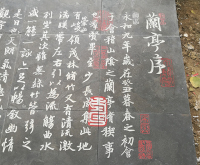 蘭亭序
永和九年歲在癸丑暮春之初會
于會稽山陰之蘭亭脩禊事
也羣賢畢至少長咸集此地
有峻領茂林脩竹又有清流激
湍暎帶左右引以為流觴曲水
列坐其次雖無絲竹管弦之
盛一觴一詠亦足以暢敘幽情
是日也天朗氣清